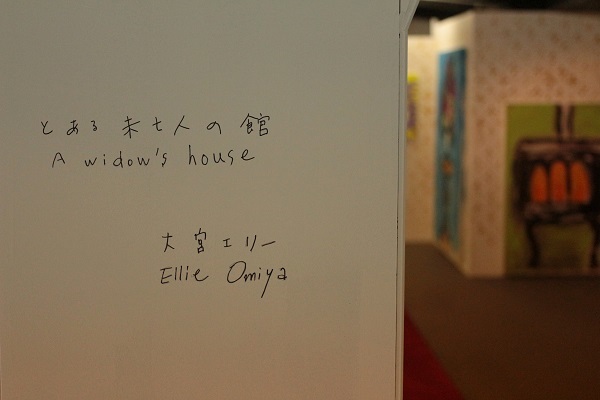 とある未亡人の館
A widow's house
大宮エリー
Ellie Omiya